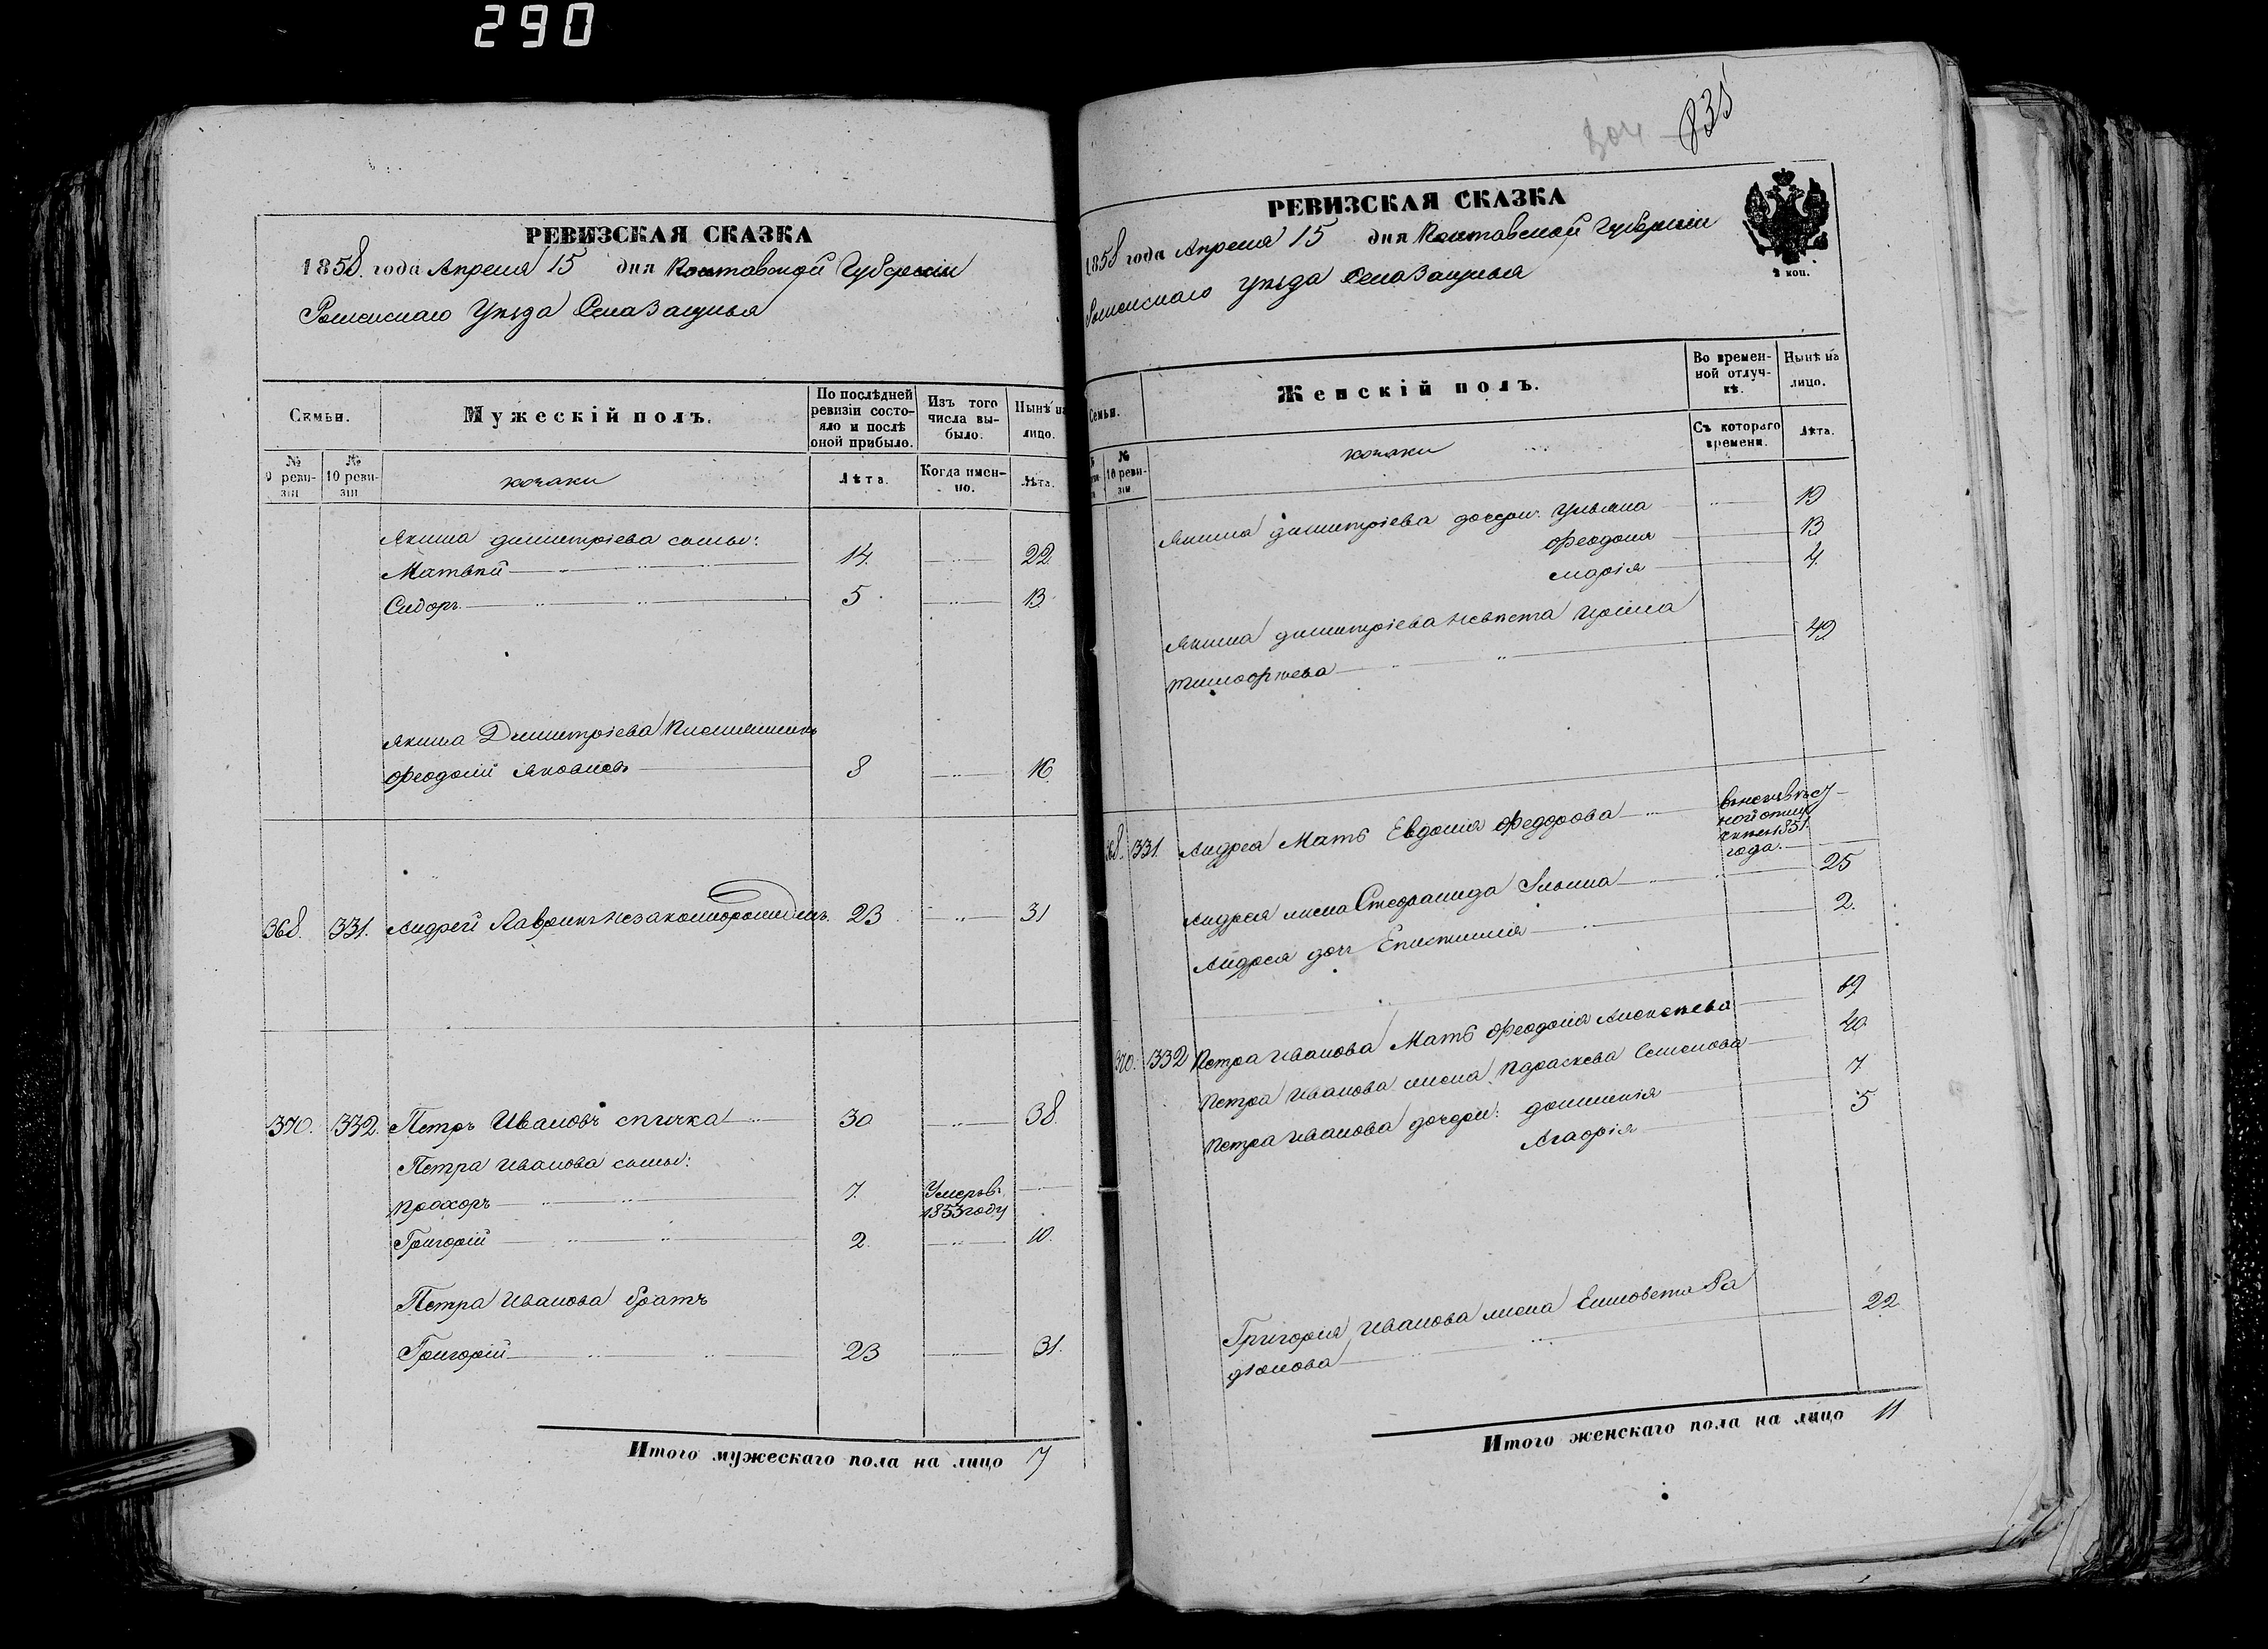 290
РЕВИЗСКАЯ СКАЗКА
1858. года Апреля 15 дня Полтавской Губерніи
Роменскаго Уѣзда Села Зацѣпья
Семьи.
Мужескій полъ.
По послѣдней ревизіи состояло и послѣ оной прибыло.
Изъ того числа выбыло.
Нынѣ на лицо.
№ 9 ревизіи
№ 10 ревизіи
козаки
Лѣта.
Когда именно.
Лѣта.
Якима Димитріева сыны:
Матвѣй 14. 22.
Сидоръ 5. 13.
Якима Димитріева племянникъ
Феодосій Яковлевъ 8 16.
368. 331. Андрей Лавринъ незаконорожденъ. 23 31
370. 332. Петръ Ивановъ спичка 30 38.
Петра Иванова сыны:
Прохоръ 7. Умеръ въ 1853 году
Григорій 2. 10.
Петра Иванова братъ
Григорій 23 31.
Итого мужескаго пола на лицо 7
835
РЕВИЗСКАЯ СКАЗКА
1858 года Апреля 15 дня Полтавской Губерніи
Роменскаго Уѣзда Села Зацѣпья
2 коп.
Семьи.
Женскій полъ.
Во временной отлучкѣ.
Нынѣ на лицо.
№ 10 ревизіи
козаки
Съ котораго времени.
Лѣта.
Якима Димитріева дочери: Ульяна 19
Феодосия 13
Марія 4.
Якима Димитріева невѣста Ирина
Тимофѣева 49
368. 331. Андрея Мать Евдокия Федорова
года.
Андрея жена Стефанида Ильина 25
Андрея дочь Епистимия 2.
370. 332 Петра Иванова Мать Феодосия Алексѣева 69
Петра Иванова жена Параскева Семенова 40.
Петра Иванова дочери: Домникія 7
Агафія 5
Григорія Иванова жена Елисовета Ра
діонова 22
Итого женскаго пола на лицо 11